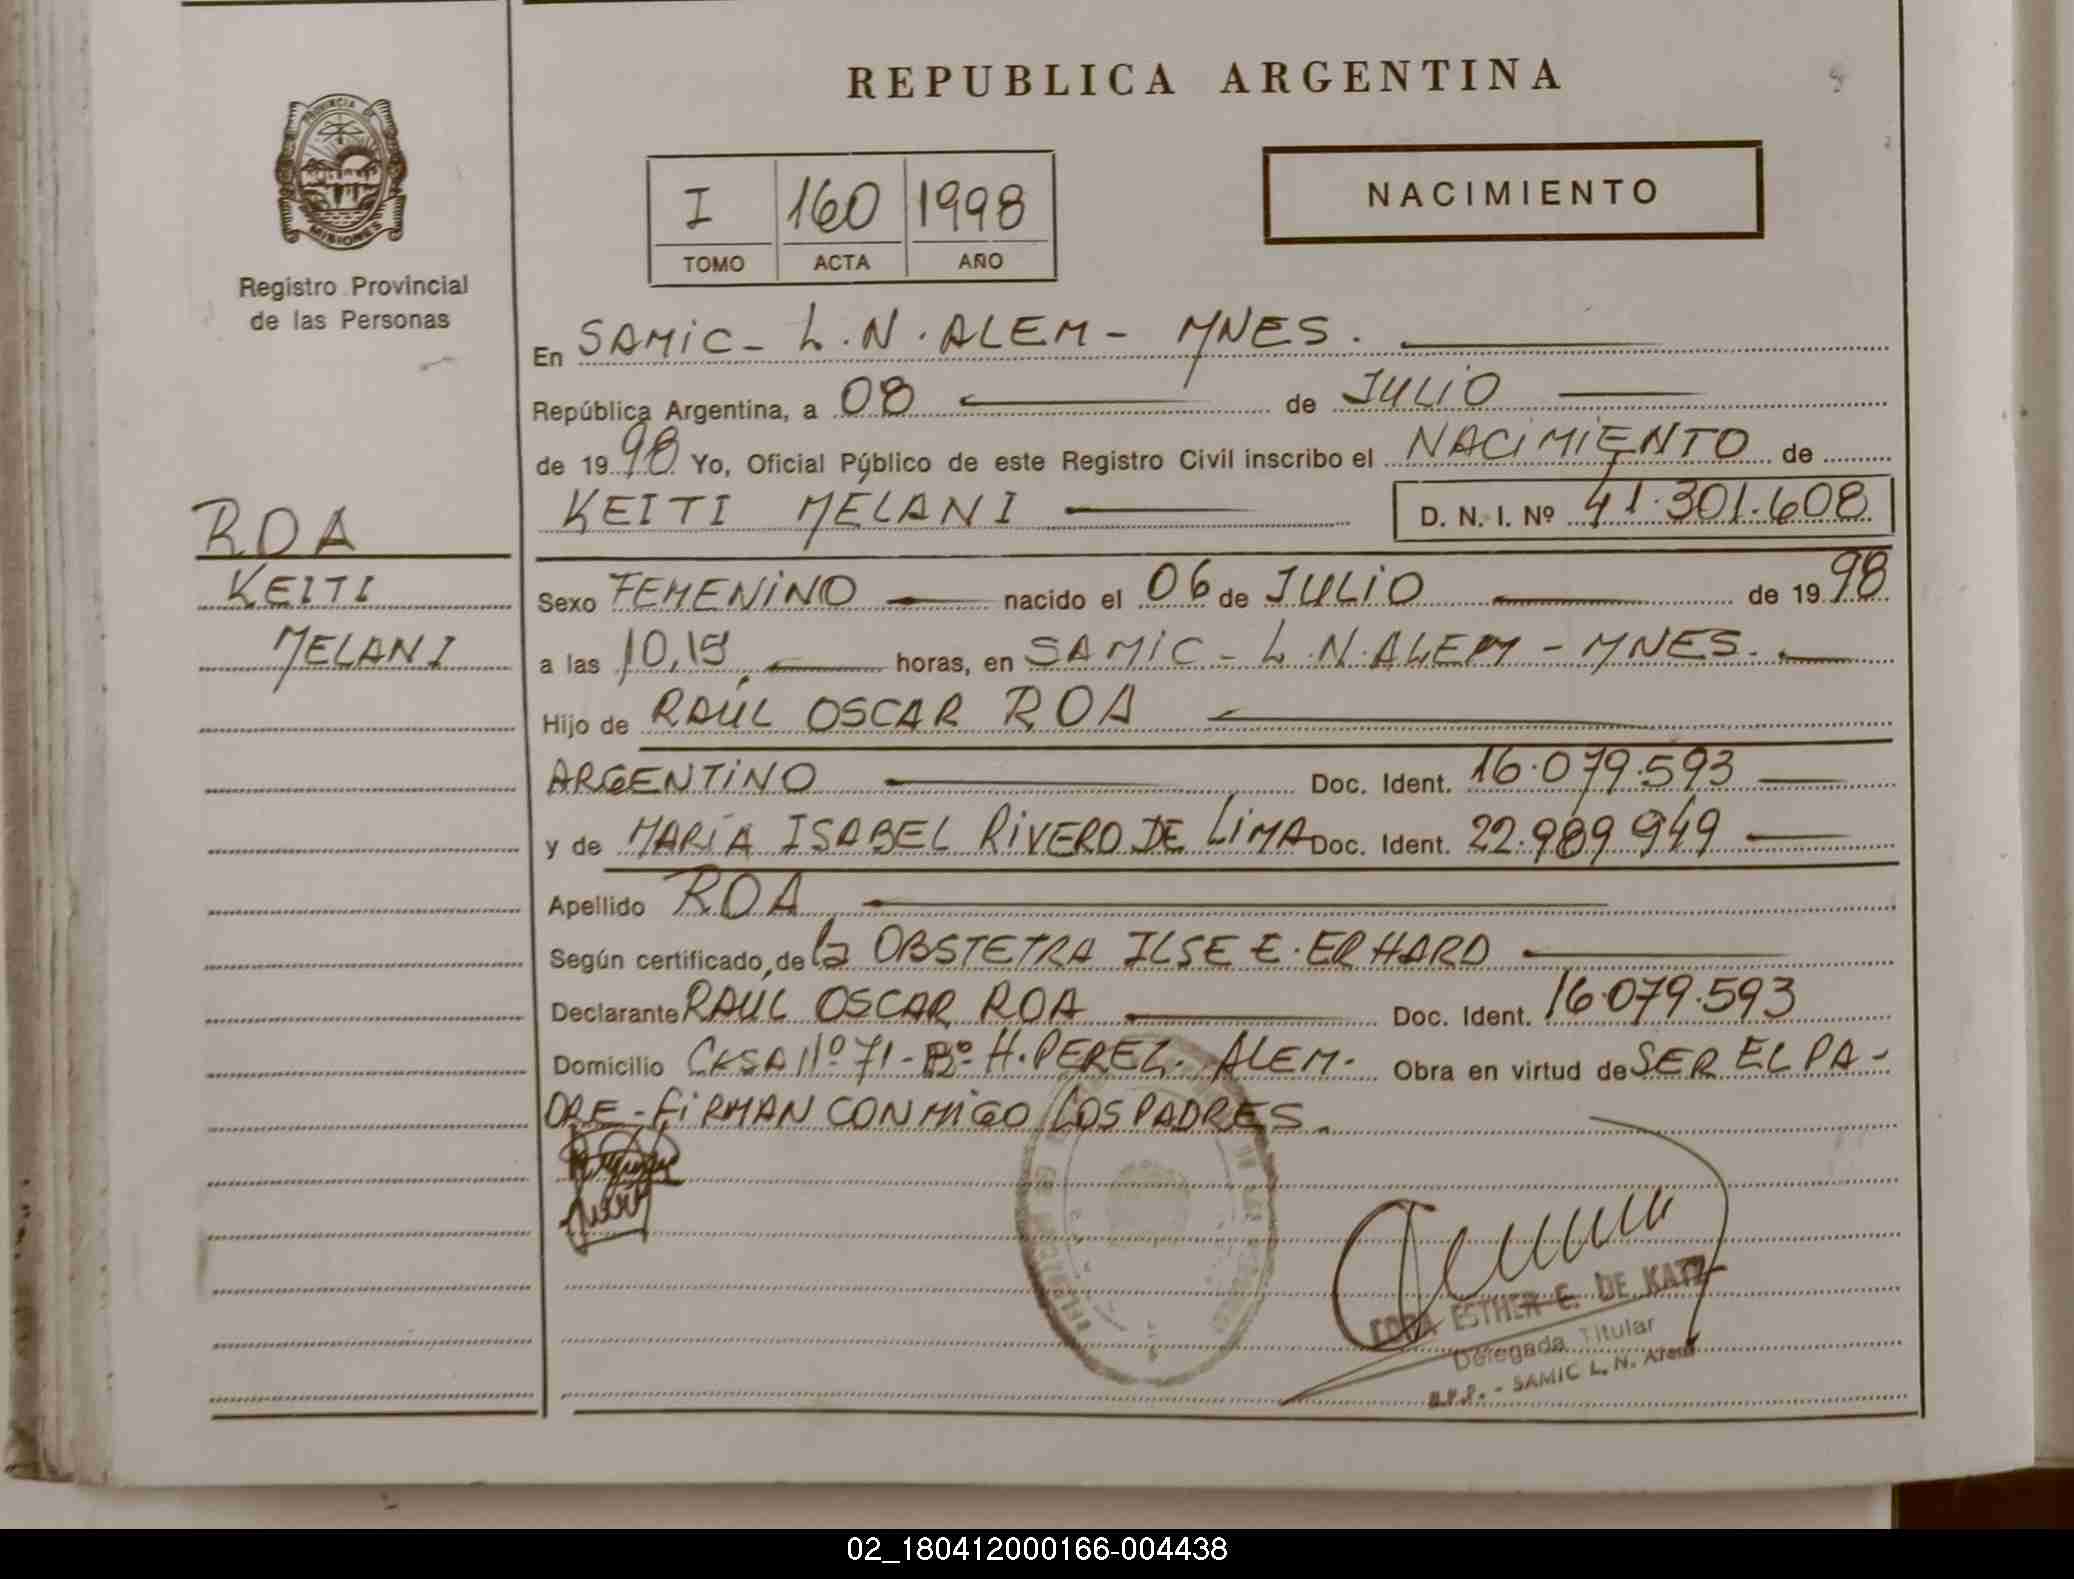 REPUBLICA ARGENTINA
PROVINCIA DE
MISIONES
Registro Provincial
de las Personas
I 160 1998
TOMO ACTA AÑO
NACIMIENTO
En SAMIC - L.N. ALEM - MNES.
República Argentina, a 08 de JULIO
de 1998 Yo, Oficial Público de este Registro Civil inscribo el NACIMIENTO de
KEITI MELANI D. N. I. Nº 41.301.608
ROA
KEITI
MELANI
Sexo FEMENINO nacido el 06 de JULIO de 1998
a las 10,15 horas, en SAMIC - L.N. ALEM - MNES.
Hijo de RAÚL OSCAR ROA
ARGENTINO Doc. Ident. 16.079.593
y de MARÍA ISABEL RIVERO DE LIMA Doc. Ident. 22.989 949
Apellido ROA
Según certificado de la OBSTETRA ILSE E. ERHARD
Declarante RAÚL OSCAR ROA Doc. Ident. 16.079.593
Domicilio CASA Nº 71 - Bº H. PEREZ - ALEM - Obra en virtud de SER EL PA-
DRE - FIRMAN CONMIGO LOS PADRES.
ESTHER E. DE KATZ
Delegada Titular
R.P.P. - SAMIC L. N. Alem
02_180412000166-004438